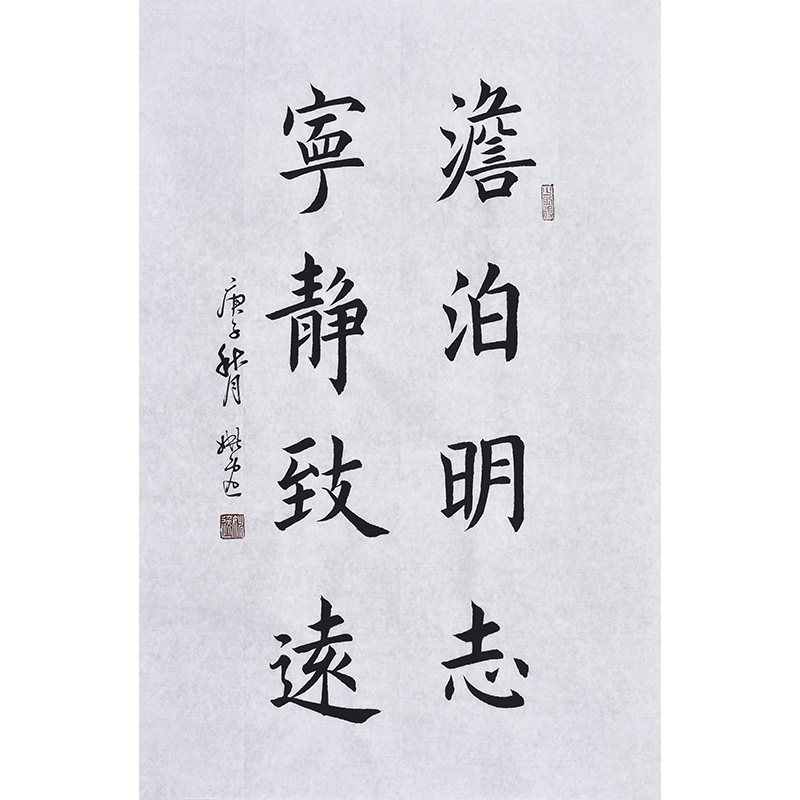 澹泊明志
寧靜致遠
庚子秋月